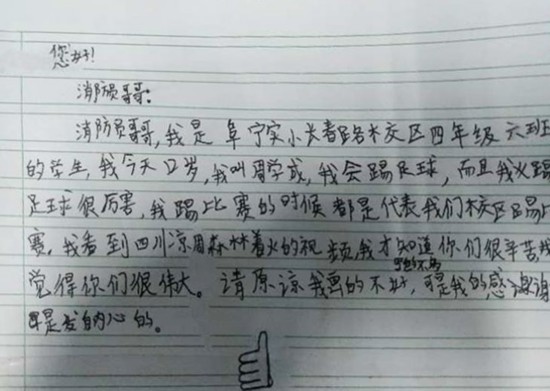 您好!
消防员哥哥:
消防员哥哥,我是阜宁实小长春路校区四年级六班
的学生,我今天12岁,我叫周学成,我会踢足球,而且我火踢
足球很厉害,我踢比赛的时候都是代表我们校区踢比
赛,我看到四川凉周森林着火的视频,我才知道你们很辛苦,我
觉得你们很伟大。请原谅我画的不好,可是我的感谢谢
是发自内心的。